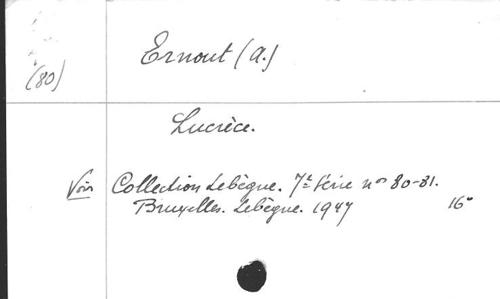 Ernout (A.)
(80)
Lucrèce.
Voir Collection Lebègue. 7e Série nos 80-81.
Bruxelles. Lebègue. 1947 16°